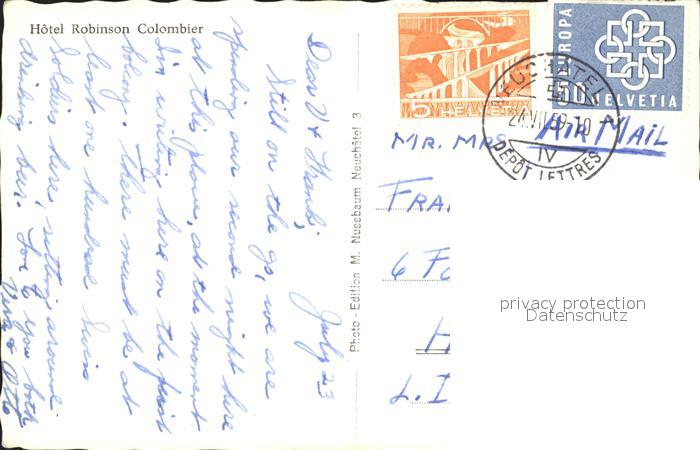 Hôtel Robinson Colombier
July 23
Dear V & Frank,
Still on the go, we are
spending our second night here
at this place, at the moment
I'm writing here on the first
balcony. There must be at
least one hundred Swiss
Soldiers here, sitting around
drinking beer. Love to you both
Vera & Otto
Photo - Edition M. Nussbaum Neuchâtel 3
5 HELVETIA
EUROPA
50 HELVETIA
NEUCHATEL
24.VII.59-10
IV
DÉPÔT LETTRES
AIR MAIL
MR. MRS
FRA
6 Fo
H
L.I
privacy protection
Datenschutz